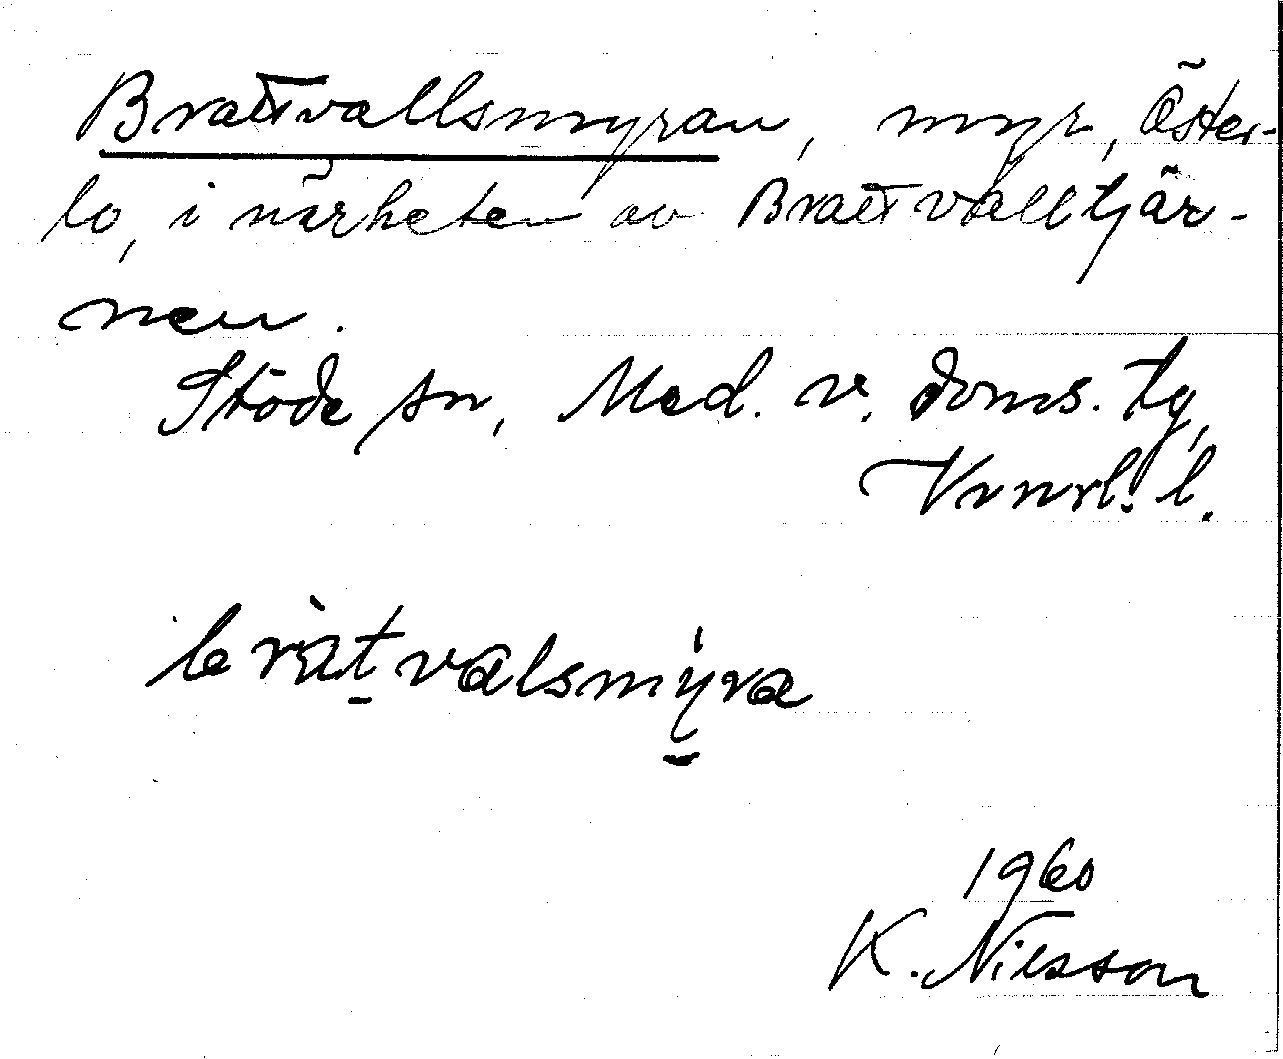 Brattvallsmyran, myr, Öster-
lo, i närheten av Brattvalltjär-
nen.
Stöde sn, Med. v. doms. tg,
Vrnrl. l.
bràt̠valsmýra
1960
K. Nilsson